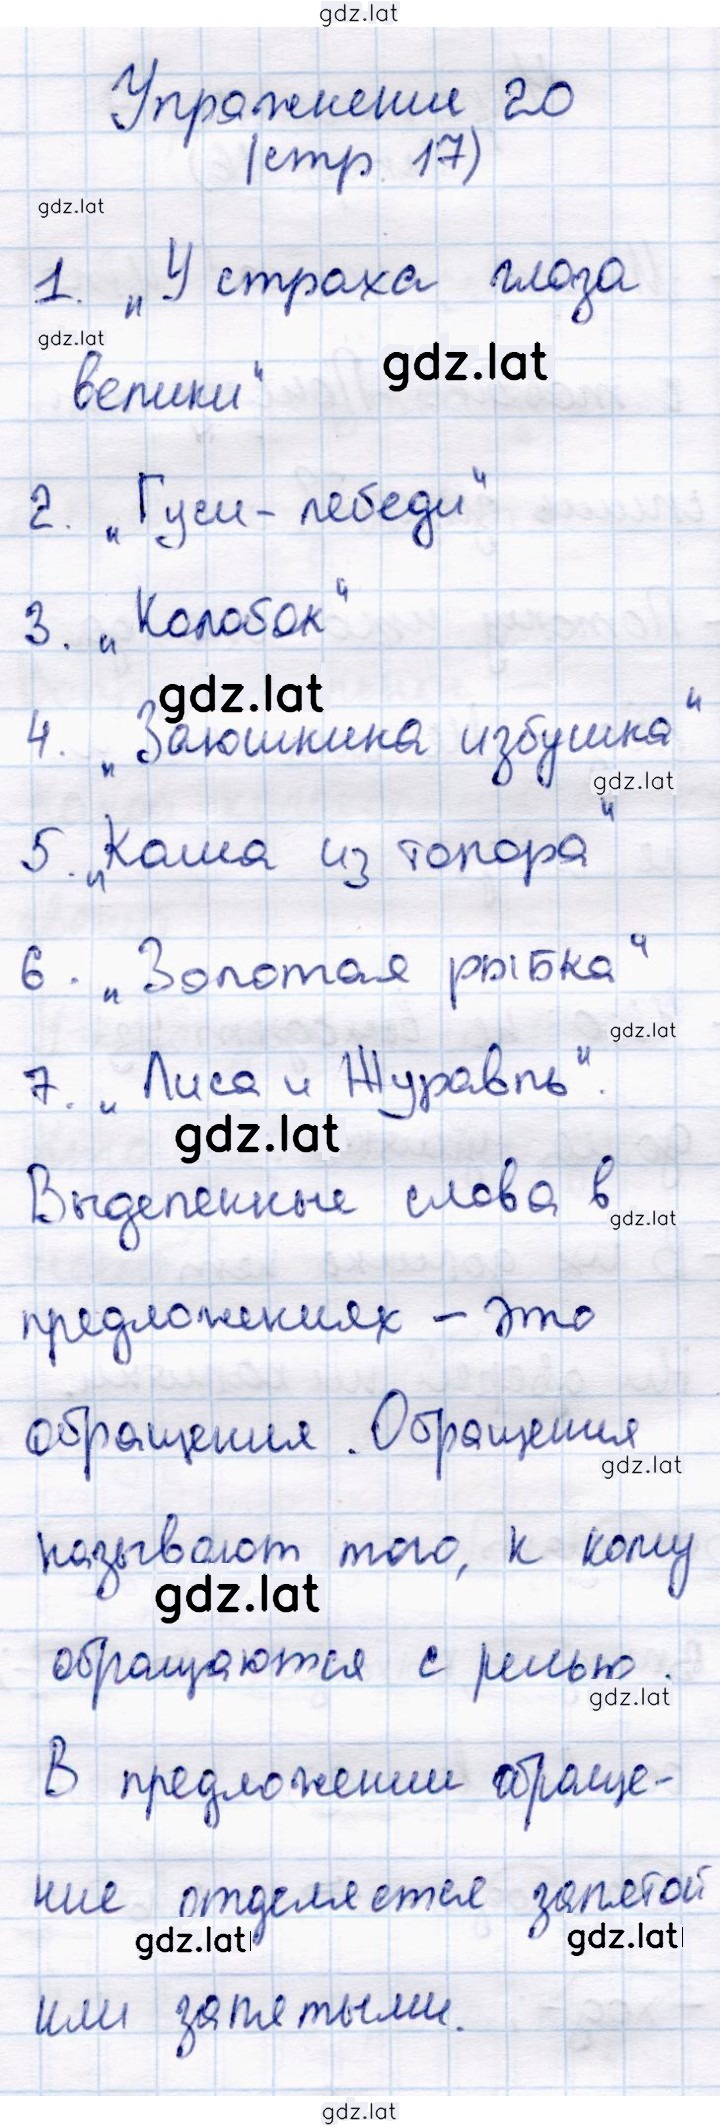 gdz.lat
Упражнение 20
(стр. 17)
gdz.lat
1. „У страха глаза
gdz.lat
gdz.lat
велики"
2. „Гуси-лебеди"
3. „Колобок"
gdz.lat
4. „Заюшкина избушка"
gdz.lat
5. „Каша из топора"
6. „Золотая рыбка"
gdz.lat
7. „Лиса и Журавль".
gdz.lat
Выделенные слова в
gdz.lat
предложениях – это
обращения. Обращения
gdz.lat
называют того, к кому
gdz.lat
обращаются с речью.
gdz.lat
В предложении обраще-
ние отделяется запятой
gdz.lat
gdz.lat
или запятыми.
gdz.lat